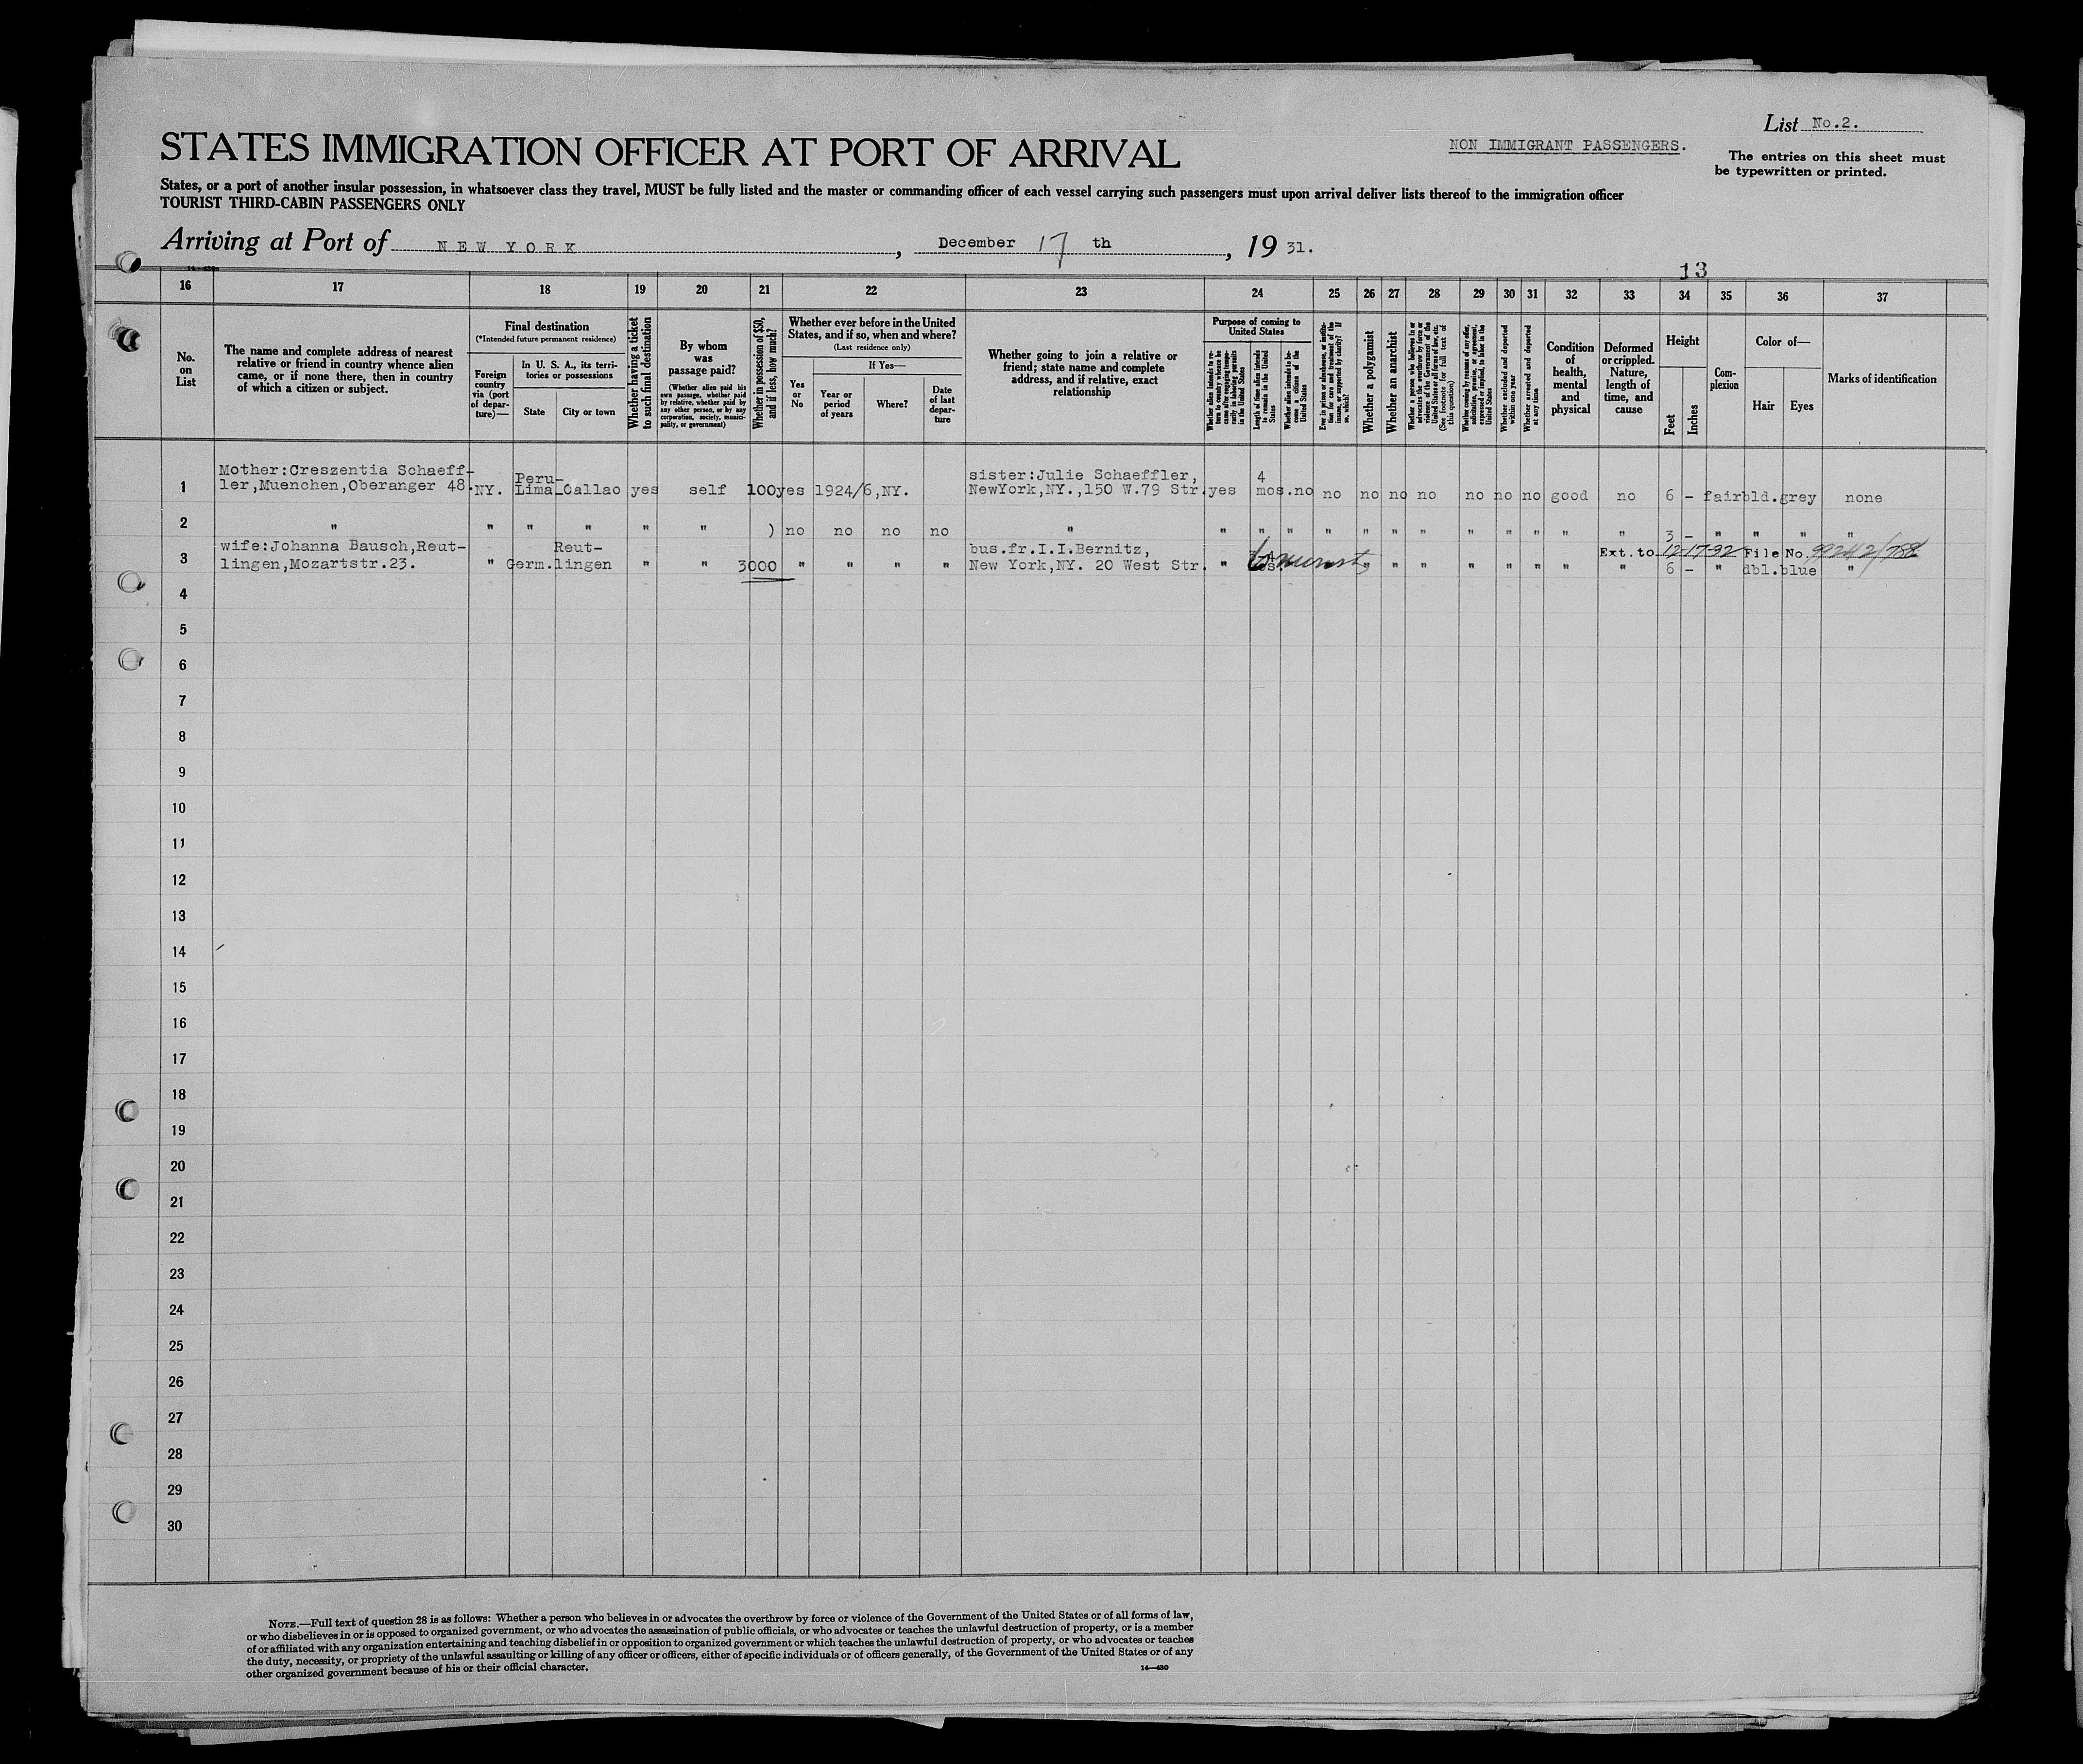 List No.2.
STATES IMMIGRATION OFFICER AT PORT OF ARRIVAL
NON IMMIGRANT PASSENGERS.
The entries on this sheet must
be typewritten or printed.
States, or a port of another insular possession, in whatsoever class they travel, MUST be fully listed and the master or commanding officer of each vessel carrying such passengers must upon arrival deliver lists thereof to the immigration officer
TOURIST THIRD-CABIN PASSENGERS ONLY
Arriving at Port of NEW YORK, December 17th, 19 31.
13
16 17 18 19 20 21 22 23 24 25 26 27 28 29 30 31 32 33 34 35 36 37
No.
on
List
The name and complete address of nearest
relative or friend in country whence alien
came, or if none there, then in country
of which a citizen or subject.
Final destination
(*Intended future permanent residence)
Foreign
country
via (port
of depar-
ture)—
In U. S. A., its terri-
tories or possessions
State
City or town
Whether having a ticket
to such final destination
By whom
was
passage paid?
(Whether alien paid his
own passage, whether paid
by relative, whether paid by
any other person, or by any
corporation, society, munici-
pality, or government)
Whether in possession of $50,
and if less, how much?
Whether ever before in the United
States, and if so, when and where?
(Last residence only)
Yes
or
No
If Yes—
Year or
period
of years
Where?
Date
of last
depar-
ture
Whether going to join a relative or
friend; state name and complete
address, and if relative, exact
relationship
Purpose of coming to
United States
Whether alien intends to re-
turn to country whence he
came after engaging tempo-
rarily in laboring pursuits
in the United States
Length of time alien intends
to remain in the United
States
Whether alien intends to be-
come a citizen of the
United States
Ever in prison or almshouse, or institu-
tion for care and treatment of the
insane, or supported by charity? If
so, which?
Whether a polygamist
Whether an anarchist
Whether a person who believes in or
advocates the overthrow by force or
violence of the Government of the
United States or all forms of law, etc.
(See footnote for full text of
this question)
Whether coming by reason of any offer,
solicitation, promise, or agreement,
expressed or implied, to labor in the
United States
Whether excluded and deported
within one year
Whether arrested and deported
at any time
Condition
of
health,
mental
and
physical
Deformed
or crippled.
Nature,
length of
time, and
cause
Height
Feet
Inches
Com-
plexion
Color of—
Hair
Eyes
Marks of identification
Mother:Creszentia Schaeff- Peru- sister:Julie Schaeffler, 4
1 ler,Muenchen,Oberanger 48. NY. Lima Callao yes self 100 yes 1924/6,NY. NewYork,NY.,150 W.79 Str. yes mos. no no no no no no no no good no 6 - fair bld. grey none
2 " " " " " " ) no no no no " " " " " " " " " " " " " 3 - " " " "
wife:Johanna Bausch,Reut- Reut- bus.fr.I.I.Bernitz, Ext. to 12-17-32 File No.
3 lingen,Mozartstr.23. " Germ. lingen " " 3000 " " " " New York,NY. 20 West Str. " " " " " " " " " " 6 - " dbl. blue "
4
5
6
7
8
9
10
11
12
13
14
15
16
17
18
19
20
21
22
23
24
25
26
27
28
29
30
NOTE.—Full text of question 28 is as follows: Whether a person who believes in or advocates the overthrow by force or violence of the Government of the United States or of all forms of law,
or who disbelieves in or is opposed to organized government, or who advocates the assassination of public officials, or who advocates or teaches the unlawful destruction of property, or is a member
of or affiliated with any organization entertaining and teaching disbelief in or opposition to organized government or which teaches the unlawful destruction of property, or who advocates or teaches
the duty, necessity, or propriety of the unlawful assaulting or killing of any officer or officers, either of specific individuals or of officers generally, of the Government of the United States or of any
other organized government because of his or their official character.
14—430